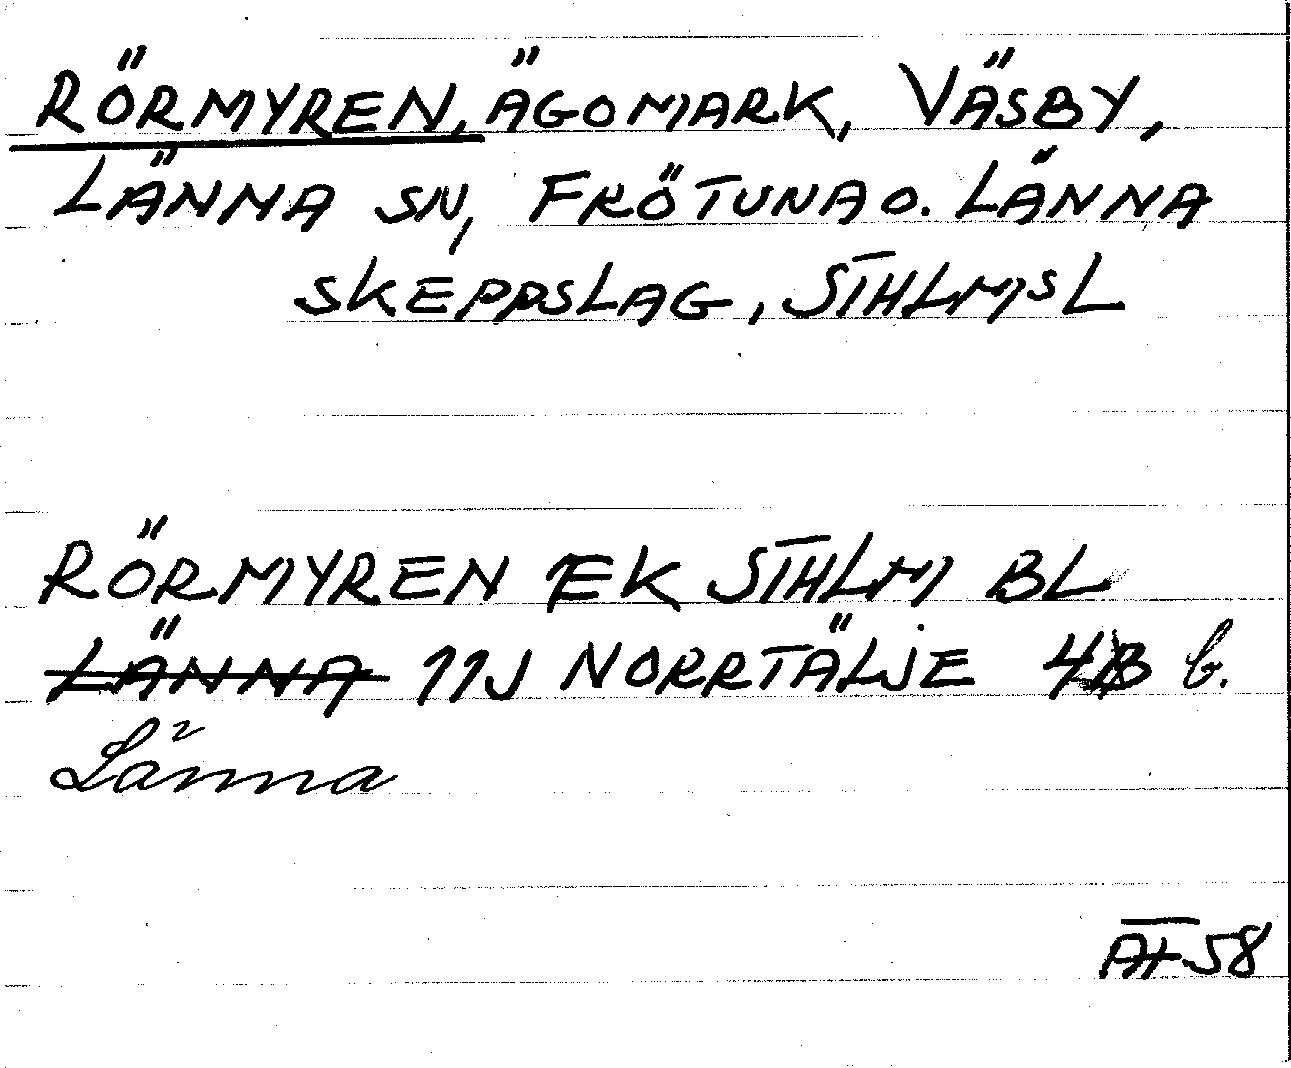 RÖRMYREN, ÄGOMARK, VÄSBY,
LÄNNA SN, FRÖTUNA O. LÄNNA
SKEPPSLAG, STHLMS L
RÖRMYREN EK STHLM BL
LÄNNA 11J NORRTÄLJE 4B b.
Länna
58